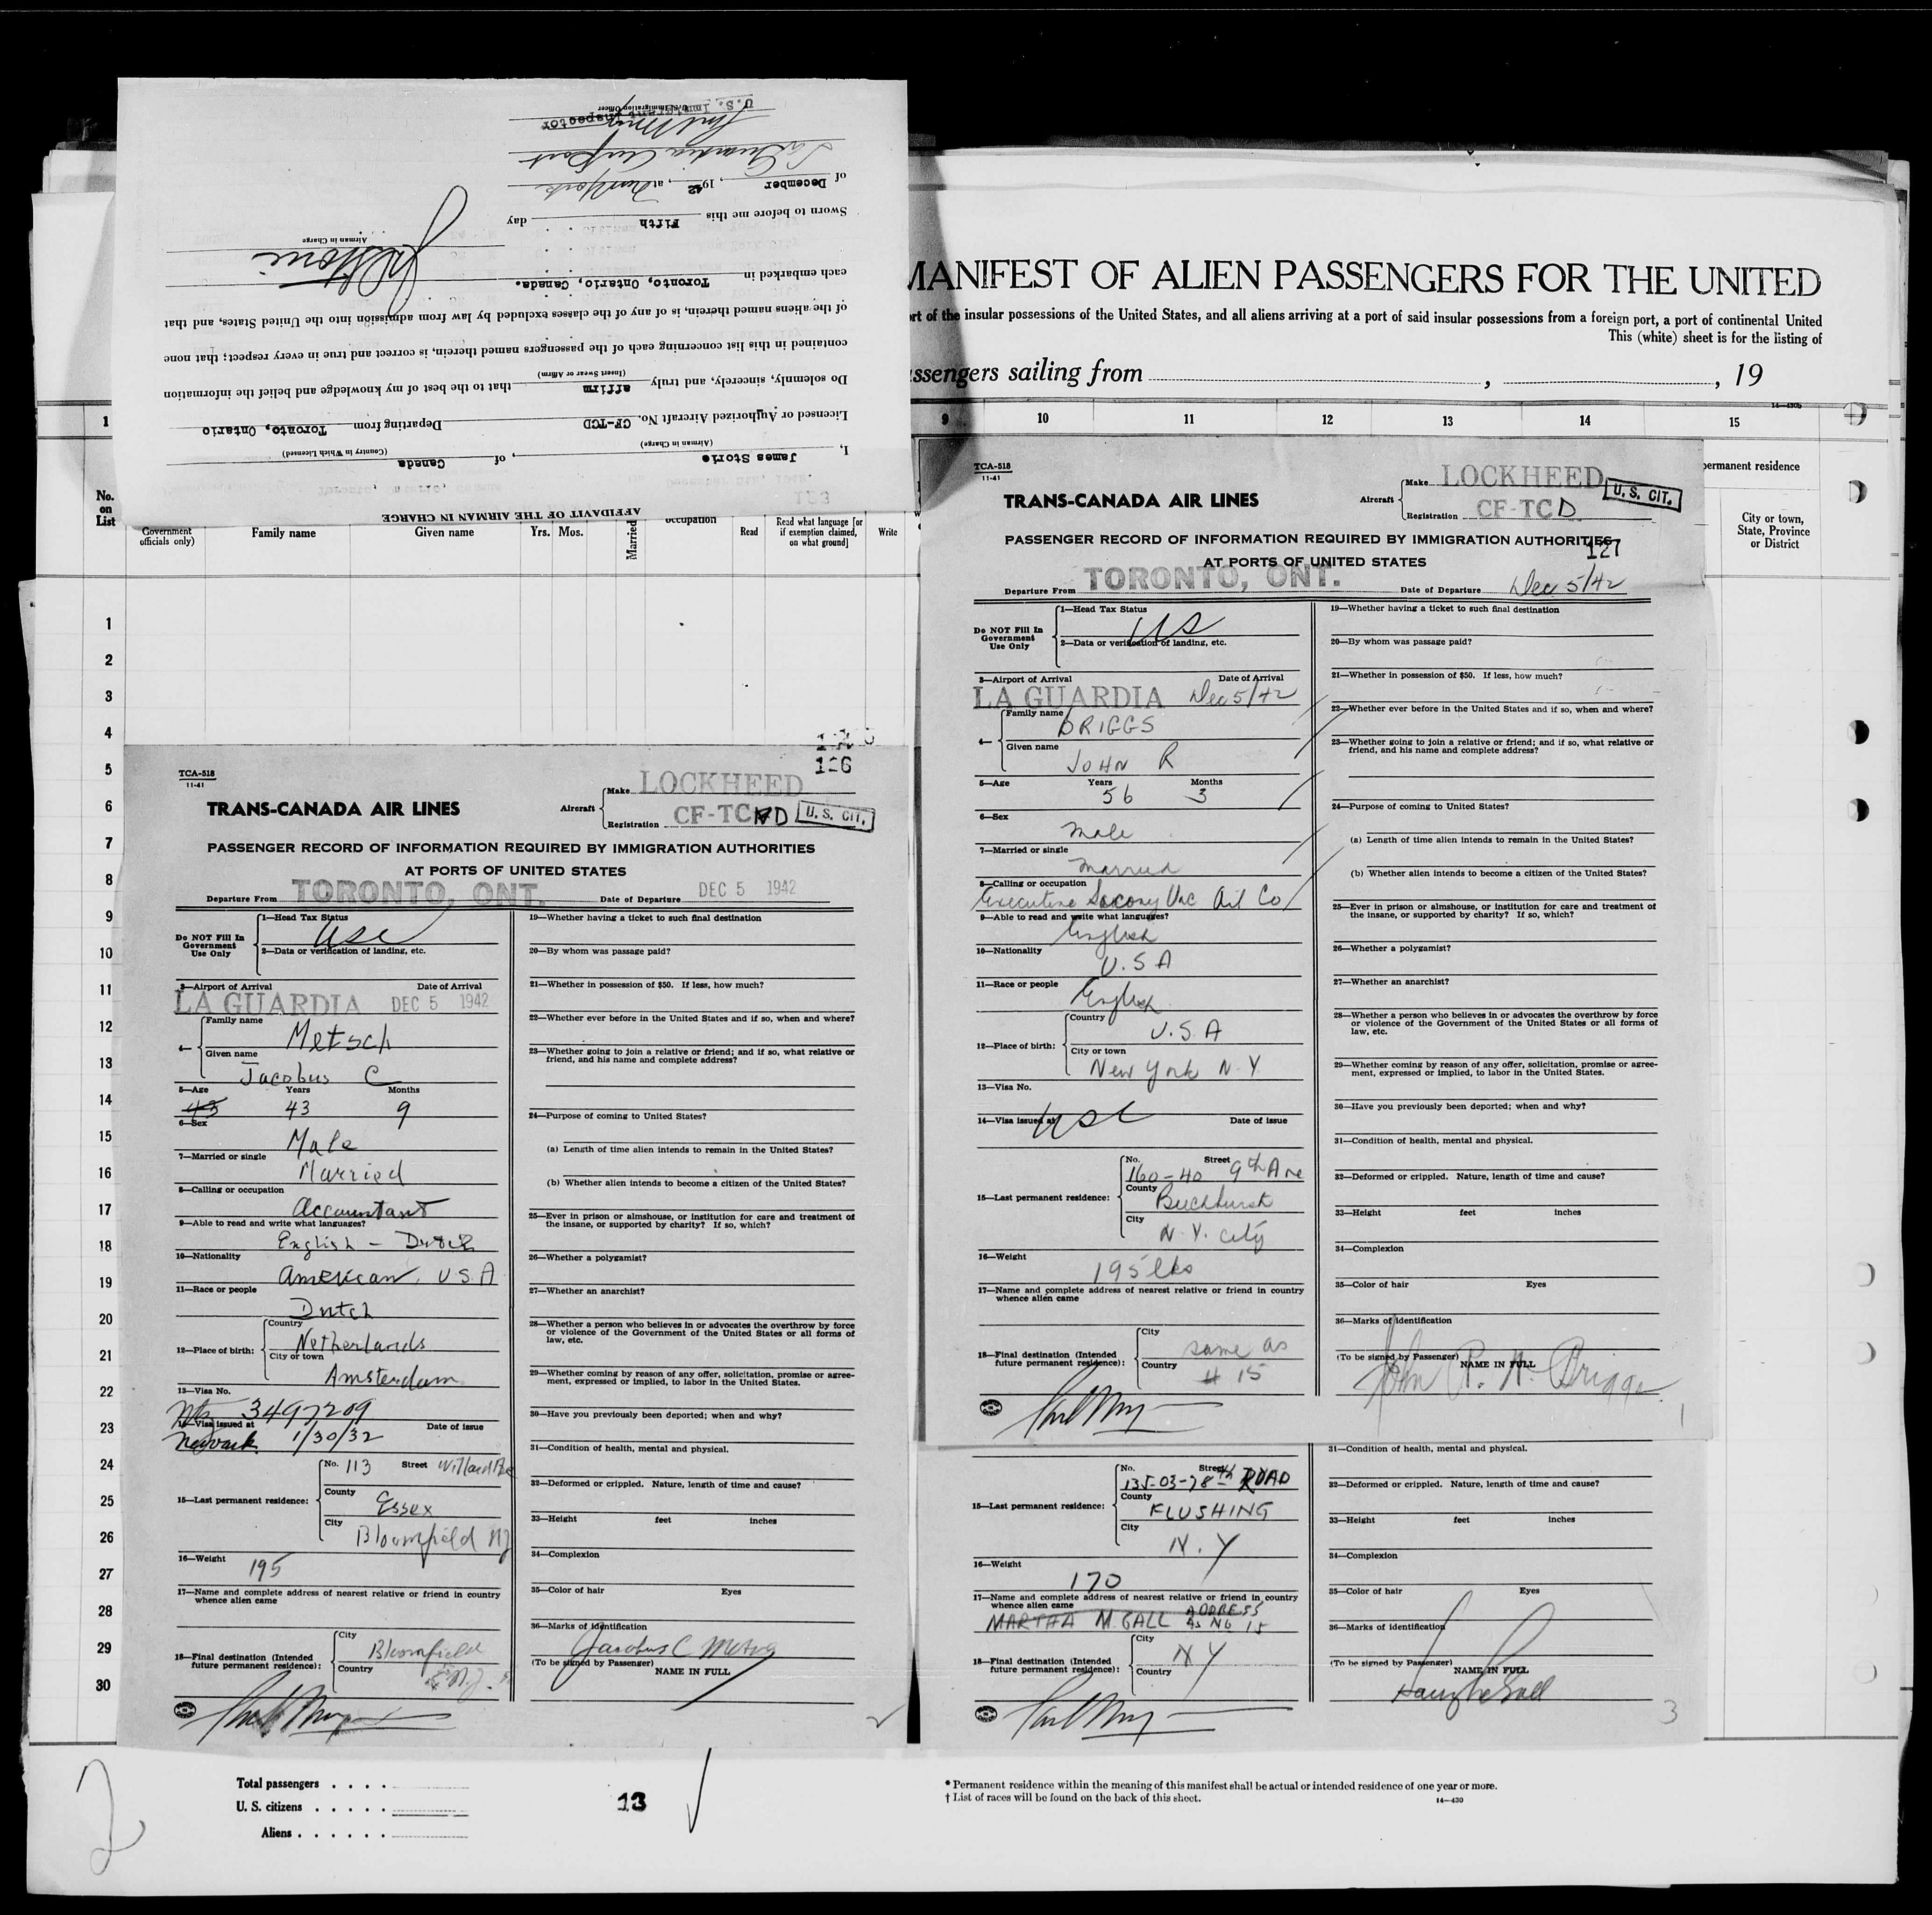 AFFIDAVIT OF THE AIRMAN IN CHARGE
123
I, James Storie, of Canada
(Airman in Charge) (Country in Which Licensed)
Licensed or Authorized Aircraft No. CF-TCD Departing from Toronto, Ontario
Do solemnly, sincerely, and truly affirm that to the best of my knowledge and belief the information
(Insert Swear or Affirm)
contained in this list concerning each of the passengers named therein, is correct and true in every respect; that none
of the aliens named therein, is of any of the classes excluded by law from admission into the United States, and that
each embarked in Toronto, Ontario, Canada.
Airman in Charge
Sworn to before me this Fifth day
of December, 1942, at New York
La Guardia Airport
U.S. Immigrant Inspector
U. S. Immigration Officer
MANIFEST OF ALIEN PASSENGERS FOR THE UNITED
rt of the insular possessions of the United States, and all aliens arriving at a port of said insular possessions from a foreign port, a port of continental United
This (white) sheet is for the listing of
assengers sailing from , , 19
14—430b
1 9 10 11 12 13 14 15
No. on List
Government officials only)
Family name Given name Yrs. Mos. Married occupation Read Read what language [or if exemption claimed, on what ground] Write
permanent residence
City or town, State, Province or District
1
2
3
4
5
6
7
8
9
10
11
12
13
14
15
16
17
18
19
20
21
22
23
24
25
26
27
28
29
30
126
TCA-518
11-41
TRANS-CANADA AIR LINES
Aircraft Make LOCKHEED
Registration CF-TCD U. S. CIT.
PASSENGER RECORD OF INFORMATION REQUIRED BY IMMIGRATION AUTHORITIES
AT PORTS OF UNITED STATES
Departure From TORONTO, ONT. Date of Departure DEC 5 1942
Do NOT Fill In Government Use Only
1—Head Tax Status
USC
2—Data or verification of landing, etc.
3—Airport of Arrival Date of Arrival
LA GUARDIA DEC 5 1942
4— Family name Metsch
Given name Jacobus C
5—Age Years Months
43 43 9
6—Sex
Male
7—Married or single
Married
8—Calling or occupation
Accountant
9—Able to read and write what languages?
English - Dutch
10—Nationality
American, U.S.A
11—Race or people
Dutch
12—Place of birth: Country Netherlands
City or town Amsterdam
13—Visa No.
3497209
14—Visa issued at Date of issue
Newark 1/30/32
15—Last permanent residence: No. 113 Street Willard Ave
County Essex
City Bloomfield NJ
16—Weight
195
17—Name and complete address of nearest relative or friend in country whence alien came
18—Final destination (Intended future permanent residence): City Bloomfield
Country N.J.
19—Whether having a ticket to such final destination
20—By whom was passage paid?
21—Whether in possession of $50. If less, how much?
22—Whether ever before in the United States and if so, when and where?
23—Whether going to join a relative or friend; and if so, what relative or friend, and his name and complete address?
24—Purpose of coming to United States?
(a) Length of time alien intends to remain in the United States?
(b) Whether alien intends to become a citizen of the United States?
25—Ever in prison or almshouse, or institution for care and treatment of the insane, or supported by charity? If so, which?
26—Whether a polygamist?
27—Whether an anarchist?
28—Whether a person who believes in or advocates the overthrow by force or violence of the Government of the United States or all forms of law, etc.
29—Whether coming by reason of any offer, solicitation, promise or agreement, expressed or implied, to labor in the United States.
30—Have you previously been deported; when and why?
31—Condition of health, mental and physical.
32—Deformed or crippled. Nature, length of time and cause?
33—Height feet inches
34—Complexion
35—Color of hair Eyes
36—Marks of identification
Jacobus C Metsch
(To be signed by Passenger) NAME IN FULL
TCA-518
11-41
TRANS-CANADA AIR LINES
Aircraft Make LOCKHEED
Registration CF-TCD U. S. CIT.
PASSENGER RECORD OF INFORMATION REQUIRED BY IMMIGRATION AUTHORITIES
127
AT PORTS OF UNITED STATES
Departure From TORONTO, ONT. Date of Departure Dec 5/42
Do NOT Fill In Government Use Only
1—Head Tax Status
US
2—Data or verification of landing, etc.
3—Airport of Arrival Date of Arrival
LA GUARDIA Dec 5/42
4— Family name BRIGGS
Given name JOHN R
5—Age Years Months
56 3
6—Sex
Male
7—Married or single
Married
8—Calling or occupation
Executive Socony Vac Oil Co
9—Able to read and write what languages?
English
10—Nationality
U.S A
11—Race or people
English
12—Place of birth: Country U.S.A
City or town New York N.Y.
13—Visa No.
14—Visa issued at Date of issue
USC
15—Last permanent residence: No. 160-40 Street 9th Ave
County Beechhurst
City N.Y. City
16—Weight
195 lbs
17—Name and complete address of nearest relative or friend in country whence alien came
18—Final destination (Intended future permanent residence): City same as
Country # 15
19—Whether having a ticket to such final destination
20—By whom was passage paid?
21—Whether in possession of $50. If less, how much?
22—Whether ever before in the United States and if so, when and where?
23—Whether going to join a relative or friend; and if so, what relative or friend, and his name and complete address?
24—Purpose of coming to United States?
(a) Length of time alien intends to remain in the United States?
(b) Whether alien intends to become a citizen of the United States?
25—Ever in prison or almshouse, or institution for care and treatment of the insane, or supported by charity? If so, which?
26—Whether a polygamist?
27—Whether an anarchist?
28—Whether a person who believes in or advocates the overthrow by force or violence of the Government of the United States or all forms of law, etc.
29—Whether coming by reason of any offer, solicitation, promise or agreement, expressed or implied, to labor in the United States.
30—Have you previously been deported; when and why?
31—Condition of health, mental and physical.
32—Deformed or crippled. Nature, length of time and cause?
33—Height feet inches
34—Complexion
35—Color of hair Eyes
36—Marks of identification
(To be signed by Passenger) NAME IN FULL
John R. N. Briggs
1
15—Last permanent residence: No. 135-03-78th Street ROAD
County FLUSHING
City N.Y
16—Weight
170
17—Name and complete address of nearest relative or friend in country whence alien came
MARTHA M. GALL ADDRESS AS NO 15
18—Final destination (Intended future permanent residence): City NY
Country
31—Condition of health, mental and physical.
32—Deformed or crippled. Nature, length of time and cause?
33—Height feet inches
34—Complexion
35—Color of hair Eyes
36—Marks of identification
(To be signed by Passenger) NAME IN FULL
3
2
Total passengers . . . .
U. S. citizens . . . . .
Aliens . . . . . .
13
* Permanent residence within the meaning of this manifest shall be actual or intended residence of one year or more.
† List of races will be found on the back of this sheet.
14—430